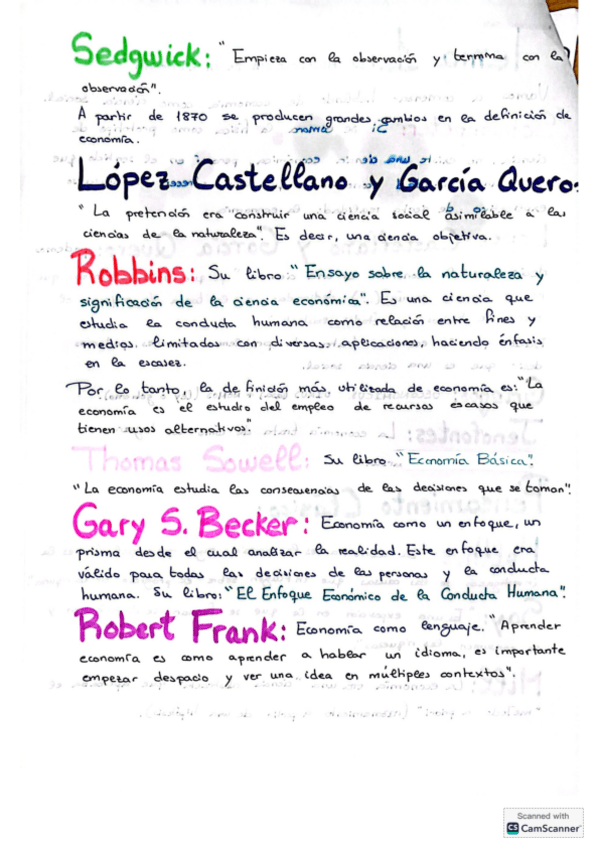 Sedgwick: "Empieza con la observación y termina con la
observación".
A partir de 1870 se producen grandes cambios en la definición de
economía.
López Castellano y García Quero:
"La pretención era construir una ciencia social asimilable a las
ciencias de la naturaleza". Es decir, una ciencia objetiva.
Robbins: Su libro "Ensayo sobre la naturaleza y
significación de la ciencia económica". Es una ciencia que
estudia la conducta humana como relación entre fines y
medios limitados con diversas aplicaciones, haciendo énfasis
en la escasez.
Por lo tanto, la definición más utilizada de economía es: "La
economía es el estudio del empleo de recursos escasos que
tienen usos alternativos".
Thomas Sowell: Su libro "Economía Básica".
"La economía estudia las consecuencias de las decisiones que se toman".
Gary S. Becker: Economía como un enfoque, un
prisma desde el cual analizar la realidad. Este enfoque era
válido para todas las decisiones de las personas y la conducta
humana. Su libro: "El Enfoque Económico de la Conducta Humana".
Robert Frank: Economía como lenguaje. "Aprender
economía es como aprender a hablar un idioma, es importante
empezar despacio y ver una idea en múltiples contextos".
Scanned with
CS CamScanner